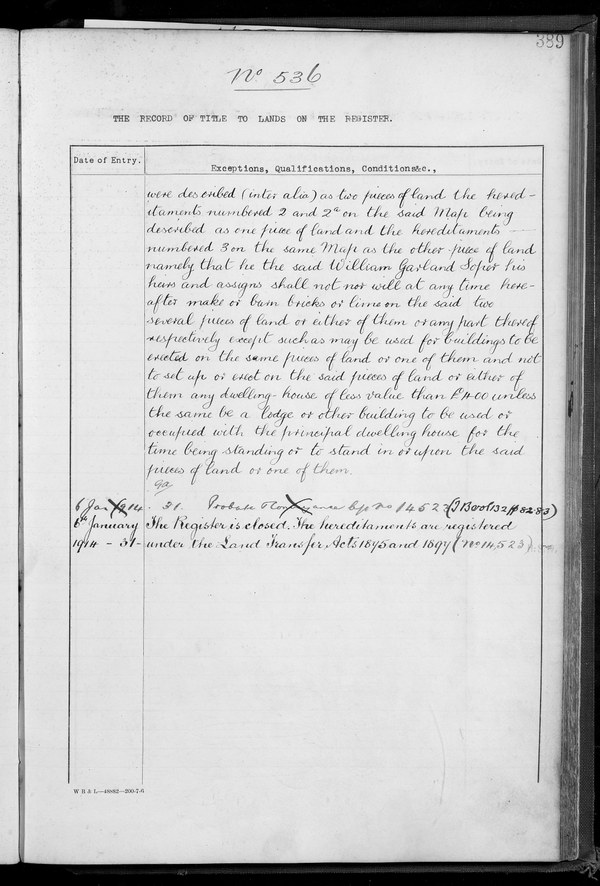 389
No 536
THE RECORD OF TITLE TO LANDS ON THE REGISTER.
Date of Entry.
Exceptions, Qualifications, Conditions&c.,
were described (inter alia) as two pieces of land the hered-
itaments numbered 2 and 2a on the said Map being
described as one piece of land and the hereditaments
numbered 3 on the same Map as the other piece of land
namely that he the said William Garland Soper his
heirs and assigns shall not nor will at any time here-
after make or burn bricks or lime on the said two
several pieces of land or either of them or any part thereof
respectively except such as may be used for buildings to be
erected on the same pieces of land or one of them and not
to set up or erect on the said pieces of land or either of
them any dwelling-house of less value than £400 unless
the same be a lodge or other building to be used or
occupied with the principal dwelling house for the
time being standing or to stand in or upon the said
pieces of land or one of them.
6 Jan 1914 . 31. Probate No 14523 (I Book 132 pp 82.83)
6th January The Register is closed. The hereditaments are registered
1914 - 31- under the Land Transfer Acts 1875 and 1897 (No 14,523)
W B & L—48882—200-7-6